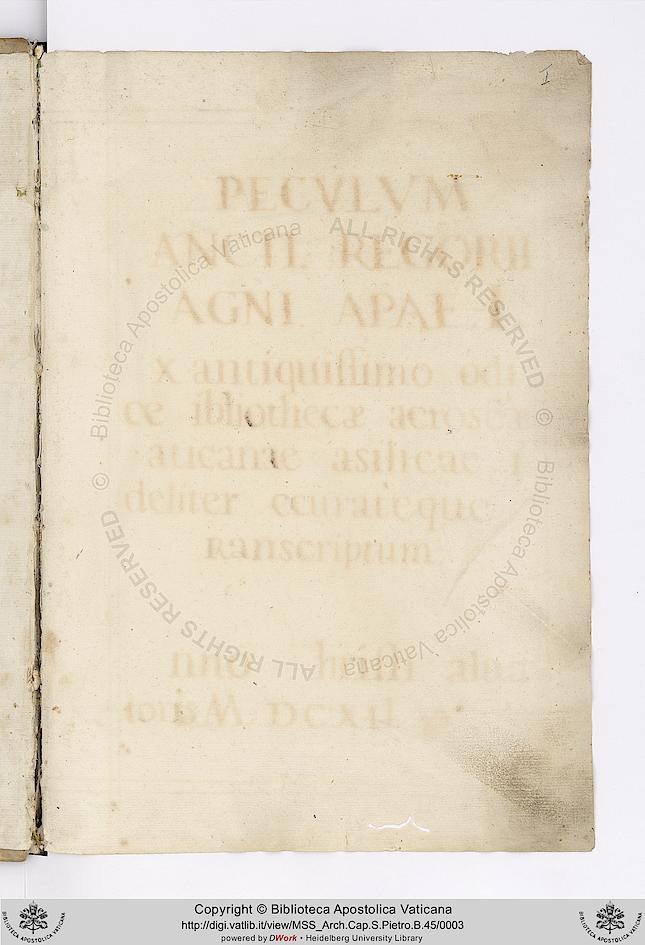 I
PECVLVM
ANCTI REGORII
AGNI APAE
x antiquissimo odi
ce ibliothecæ acrosan
aticanae asilicae
deliter ccurateque
ranscriptum
nno hristi
M DCXII
Biblioteca Apostolica Vaticana ALL RIGHTS RESERVED © Biblioteca Apostolica Vaticana ALL RIGHTS RESERVED ©
Copyright © Biblioteca Apostolica Vaticana
http://digi.vatlib.it/view/MSS_Arch.Cap.S.Pietro.B.45/0003
powered by DWork • Heidelberg University Library